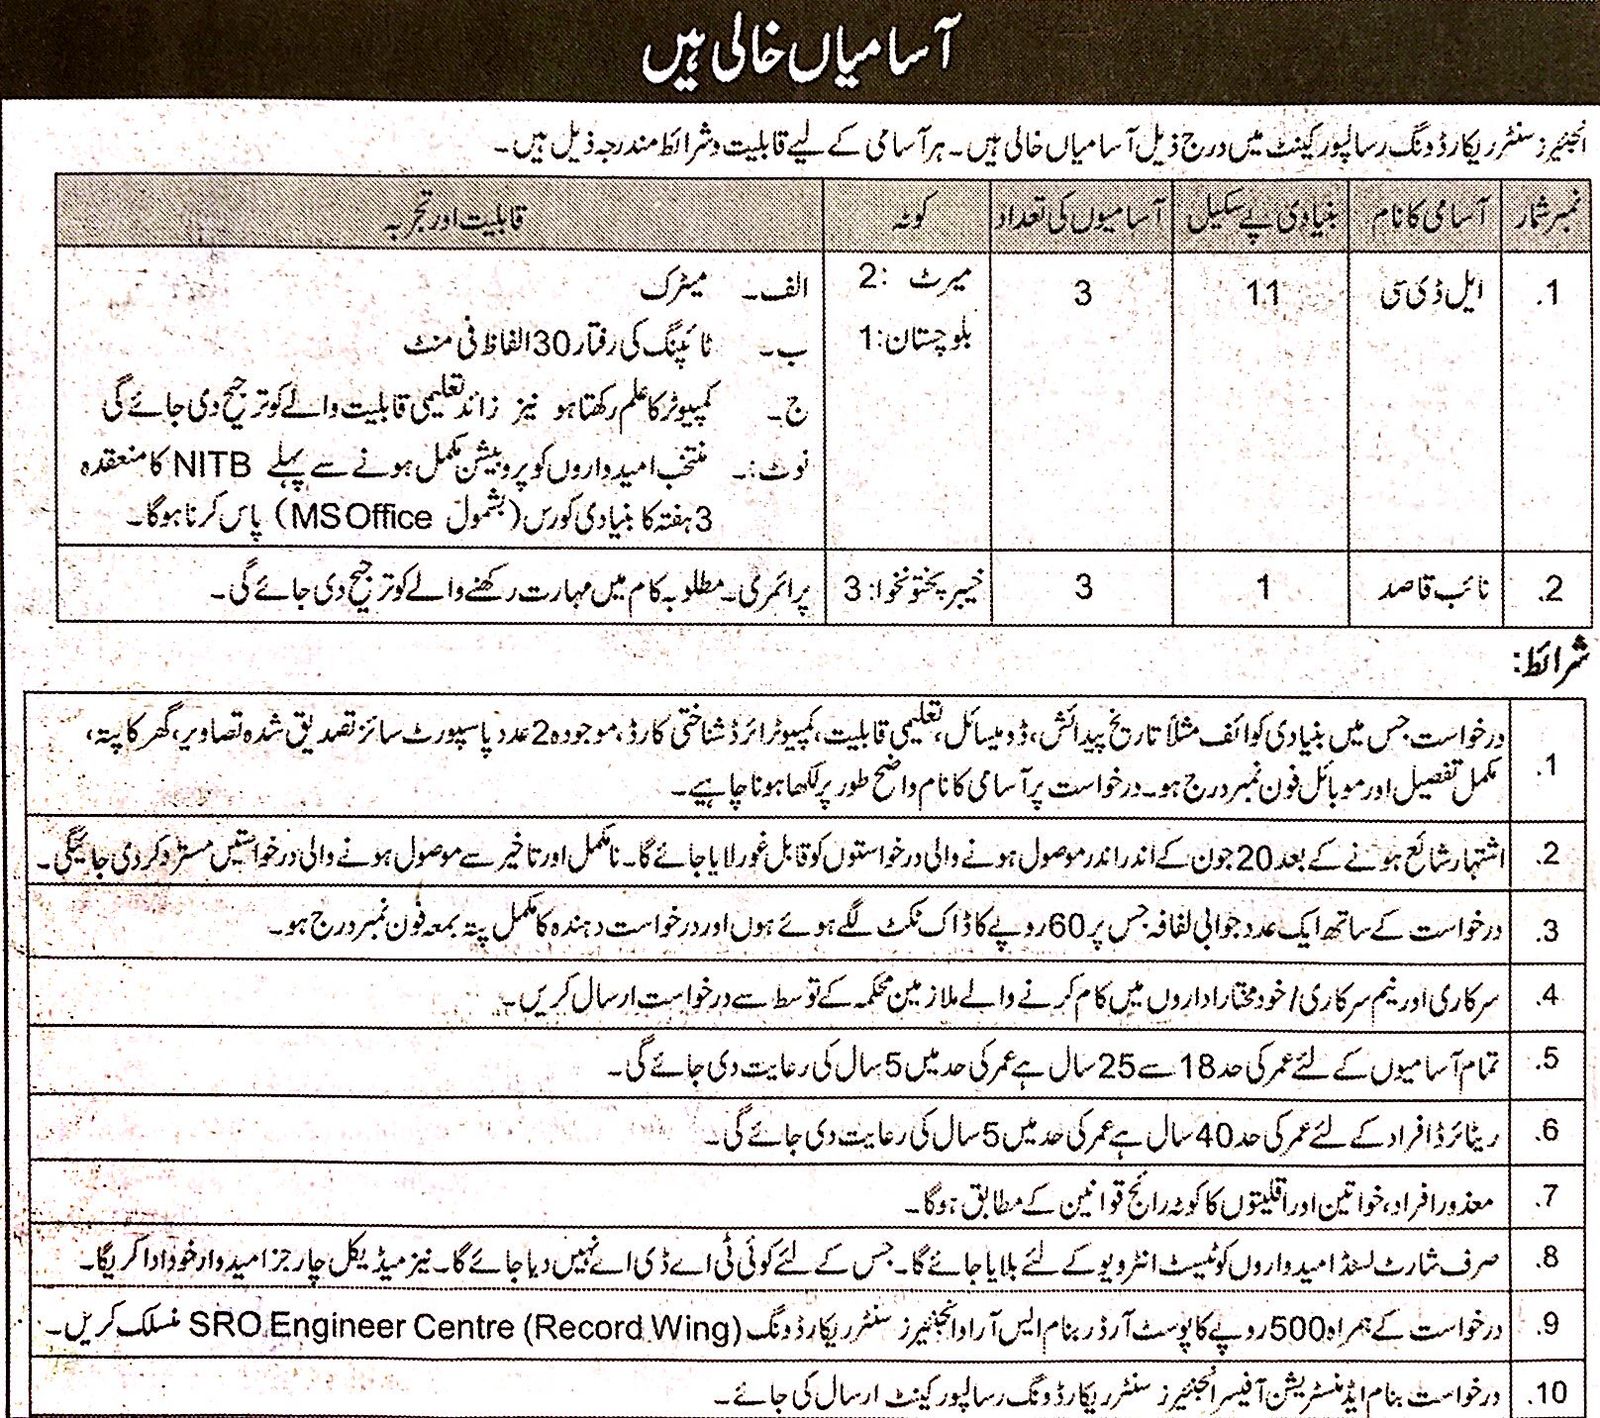 آسامیاں خالی ہیں
انجنیئرز سنٹر ریکارڈ ونگ رسالپور کینٹ میں درج ذیل آسامیاں خالی ہیں۔ ہر آسامی کے لیے قابلیت و شرائط مندرجہ ذیل ہیں۔
نمبر شمار آسامی کا نام بنیادی پے سکیل آسامیوں کی تعداد کوٹہ قابلیت اور تجربہ
1. ایل ڈی سی 11 3 میرٹ :2 الف۔ میٹرک
بلوچستان:1 ب۔ ٹائپنگ کی رفتار 30 الفاظ فی منٹ
ج۔ کمپیوٹر کا علم رکھتا ہو نیز زائد تعلیمی قابلیت والے کو ترجیح دی جائے گی
نوٹ:۔ منتخب امیدواروں کو پروبیشن مکمل ہونے سے پہلے NITB کا منعقدہ
3 ہفتہ کا بنیادی کورس (بشمول MS Office) پاس کرنا ہوگا۔
2. نائب قاصد 1 3 خیبر پختونخوا:3 پرائمری۔ مطلوبہ کام میں مہارت رکھنے والے کو ترجیح دی جائے گی۔
شرائط:
1. درخواست جس میں بنیادی کوائف مثلاً تاریخ پیدائش، ڈومیسائل، تعلیمی قابلیت، کمپیوٹرائزڈ شناختی کارڈ، موجودہ 2 عدد پاسپورٹ سائز تصدیق شدہ تصاویر، گھر کا پتہ،
مکمل تفصیل اور موبائل فون نمبر درج ہو۔ درخواست پر آسامی کا نام واضح طور پر لکھا ہونا چاہیے۔
2. اشتہار شائع ہونے کے بعد 20 جون کے اندر اندر موصول ہونے والی درخواستوں کو قابل غور لایا جائے گا۔ نامکمل اور تاخیر سے موصول ہونے والی درخواستیں مسترد کر دی جائیگی۔
3. درخواست کے ساتھ ایک عدد جوابی لفافہ جس پر 60 روپے کا ڈاک ٹکٹ لگے ہوئے ہوں اور درخواست دہندہ کا مکمل پتہ بمعہ فون نمبر درج ہو۔
4. سرکاری اور نیم سرکاری/ خودمختار اداروں میں کام کرنے والے ملازمین محکمہ کے توسط سے درخواست ارسال کریں۔
5. تمام آسامیوں کے لئے عمر کی حد 18 سے 25 سال ہے عمر کی حد میں 5 سال کی رعایت دی جائے گی۔
6. ریٹائرڈ افراد کے لئے عمر کی حد 40 سال ہے عمر کی حد میں 5 سال کی رعایت دی جائے گی۔
7. معذور افراد، خواتین اور اقلیتوں کا کوٹہ رائج قوانین کے مطابق ہوگا۔
8. صرف شارٹ لسٹڈ امیدواروں کو ٹیسٹ انٹرویو کے لئے بلایا جائے گا۔ جس کے لئے کوئی ٹی اے ڈی اے نہیں دیا جائے گا۔ نیز میڈیکل چارجز امیدوار خود ادا کریگا۔
9. درخواست کے ہمراہ 500 روپے کا پوسٹ آرڈر بنام ایس آر او انجنیئرز سنٹر ریکارڈ ونگ SRO Engineer Centre (Record Wing) منسلک کریں۔
10. درخواست بنام ایڈمنسٹریشن آفیسر انجنیئرز سنٹر ریکارڈ ونگ رسالپور کینٹ ارسال کی جائے۔